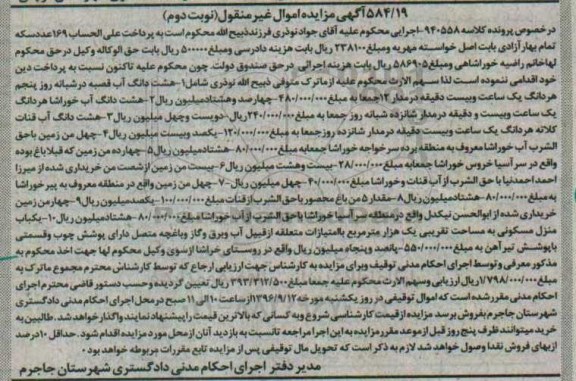 ۵۸۴/۱۹آگهی مزایده اموال غیر منقول(نوبت دوم)
در خصوص پرونده کلاسه ۹۴۰۵۵۸-اجرایی محکوم علیه آقای جواد نوذری فرزند ذبیح الله محکوم است به پرداخت علی الحساب ۱۶۹ عدد سکه
تمام بهار آزادی بابت اصل خواسته مهریه و مبلغ ۲۳۸۱۰۰ ریال بابت هزینه دادرسی و مبلغ ۵۰۰۰۰۰ ریال بابت حق الوکاله وکیل در حق محکوم
لها خانم راضیه خوراشاهی و مبلغ ۵۸۶۹۰۵ ریال بابت هزینه اجرائی در حق صندوق دولت. چون محکوم علیه تاکنون نسبت به پرداخت دین
خود اقدامی ننموده است لذا سهم الارث محکوم علیه از ماترک متوفی ذبیح الله نوذری شامل۱-هشت دانگ آب قصبه در شبانه روز پنجم
هر دانگ یک ساعت و بیست دقیقه در مدار ۱۲ جمعا به مبلغ ۴۸۰/۰۰۰/۰۰۰-چهارصد و هشتاد میلیون ریال ۲-هشت دانگ آب خوراشا هر دانگ
یک ساعت و بیست و دقیقه در مدار شانزده شبانه روز جمعا به مبلغ ۲۴۰/۰۰۰/۰۰۰ریال-دویست و چهل میلیون ریال ۳-هشت دانگ آب قنات
کلاته هر دانگ یک ساعت و بیست دقیقه در مدار شانزده روز جمعا به مبلغ ۱۲۰/۰۰۰/۰۰۰-یکصد و بیست میلیون ریال ۴-چهل من زمین با حق
الشرب آب خوراشا معروف به منطقه پرده سر خواجه خوراشا جمعابه مبلغ ۸۰/۰۰۰/۰۰۰-هشتاد میلیون ریال ۵-چهارده من زمین که قبلا باغ بوده
واقع در سر آسیا خروس خوراشا جمعابه مبلغ ۲۸/۰۰۰/۰۰۰-بیست و هشت میلیون ریال ۶-بیست من زمین از شصت من خریداری شده از میرزا
احمد احمدنیا با حق الشرب از آب قنات و خوراشا مبلغ ۴۰/۰۰۰/۰۰۰-چهل میلیون ریال ۷-چهل من زمین واقع در منطقه معروف به پیر خوراشا
به مبلغ ۸۰/۰۰۰/۰۰۰-هشتاد میلیون ریال ۸-مقدار ۵ من باغ محصور با حق الشرب از قنات مبلغ ۱۰۰/۰۰۰/۰۰۰-یکصد میلیون ریال ۹-چهار من زمین
خریداری شده از ابوالحسن نیکدل واقع در منطقه سر آسیا خوراشا با حق الشرب از آب خوراشا مبلغ ۸۰/۰۰۰/۰۰۰-هشتاد میلیون ریال ۱۰-یکباب
منزل مسکونی به مساحت تقریبی یک هزار مترمربع باامتیازات متعلقه از قبیل آب وبرق و گاز و باغچه متصل دارای پوشش چوب و قسمتی
با پوشش تیر آهن به مبلغ ۵۵۰/۰۰۰/۰۰۰-پانصد و پنجاه میلیون ریال واقع در روستای خراشا از سوی وکیل محکوم لها جهت اخذ محکوم به
مذکور معرفی و توسط اجرای احکام مدنی توقیف و برای مزایده به کارشناس جهت ارزیابی ارجاع که توسط کارشناس محترم مجموع ماترک به
مبلغ ۱/۷۹۸/۰۰۰/۰۰۰ ریال ارزیابی و سهم الارث محکوم علیه جمعا مبلغ ۳۹۳/۳۱۲/۵۰۰ ریال تعیین گردیده و حسب دستور قاضی محترم اجرای
احکام مدنی مقرر شده است که اموال توقیفی در روز یکشنبه مورخه ۱۳۹۶/۹/۱۲ از ساعت ۱۰ الی ۱۱ صبح در محل اجرای احکام مدنی دادگستری
شهرستان جاجرم بفروش برسد مزایده از قیمت کارشناسی شروع و به کسانی که بالاترین قیمت را پیشنهاد نمایند واگذار خواهد شد. طالبین به
خرید میتوانند ظرف پنج روز قبل از موعد مقرر مزایده به این اجرا مراجعه تا نسبت به بازدید آنان از محل مورد مزایده اقدام شود. حداقل ۱۰ درصد
از بهای فروش نقدا وصول خواهد شد لازم به ذکر است که تحویل مال توقیفی پس از مزایده تابع مقررات مربوطه خواهد بود.
مدیر دفتر اجرای احکام مدنی دادگستری شهرستان جاجرم